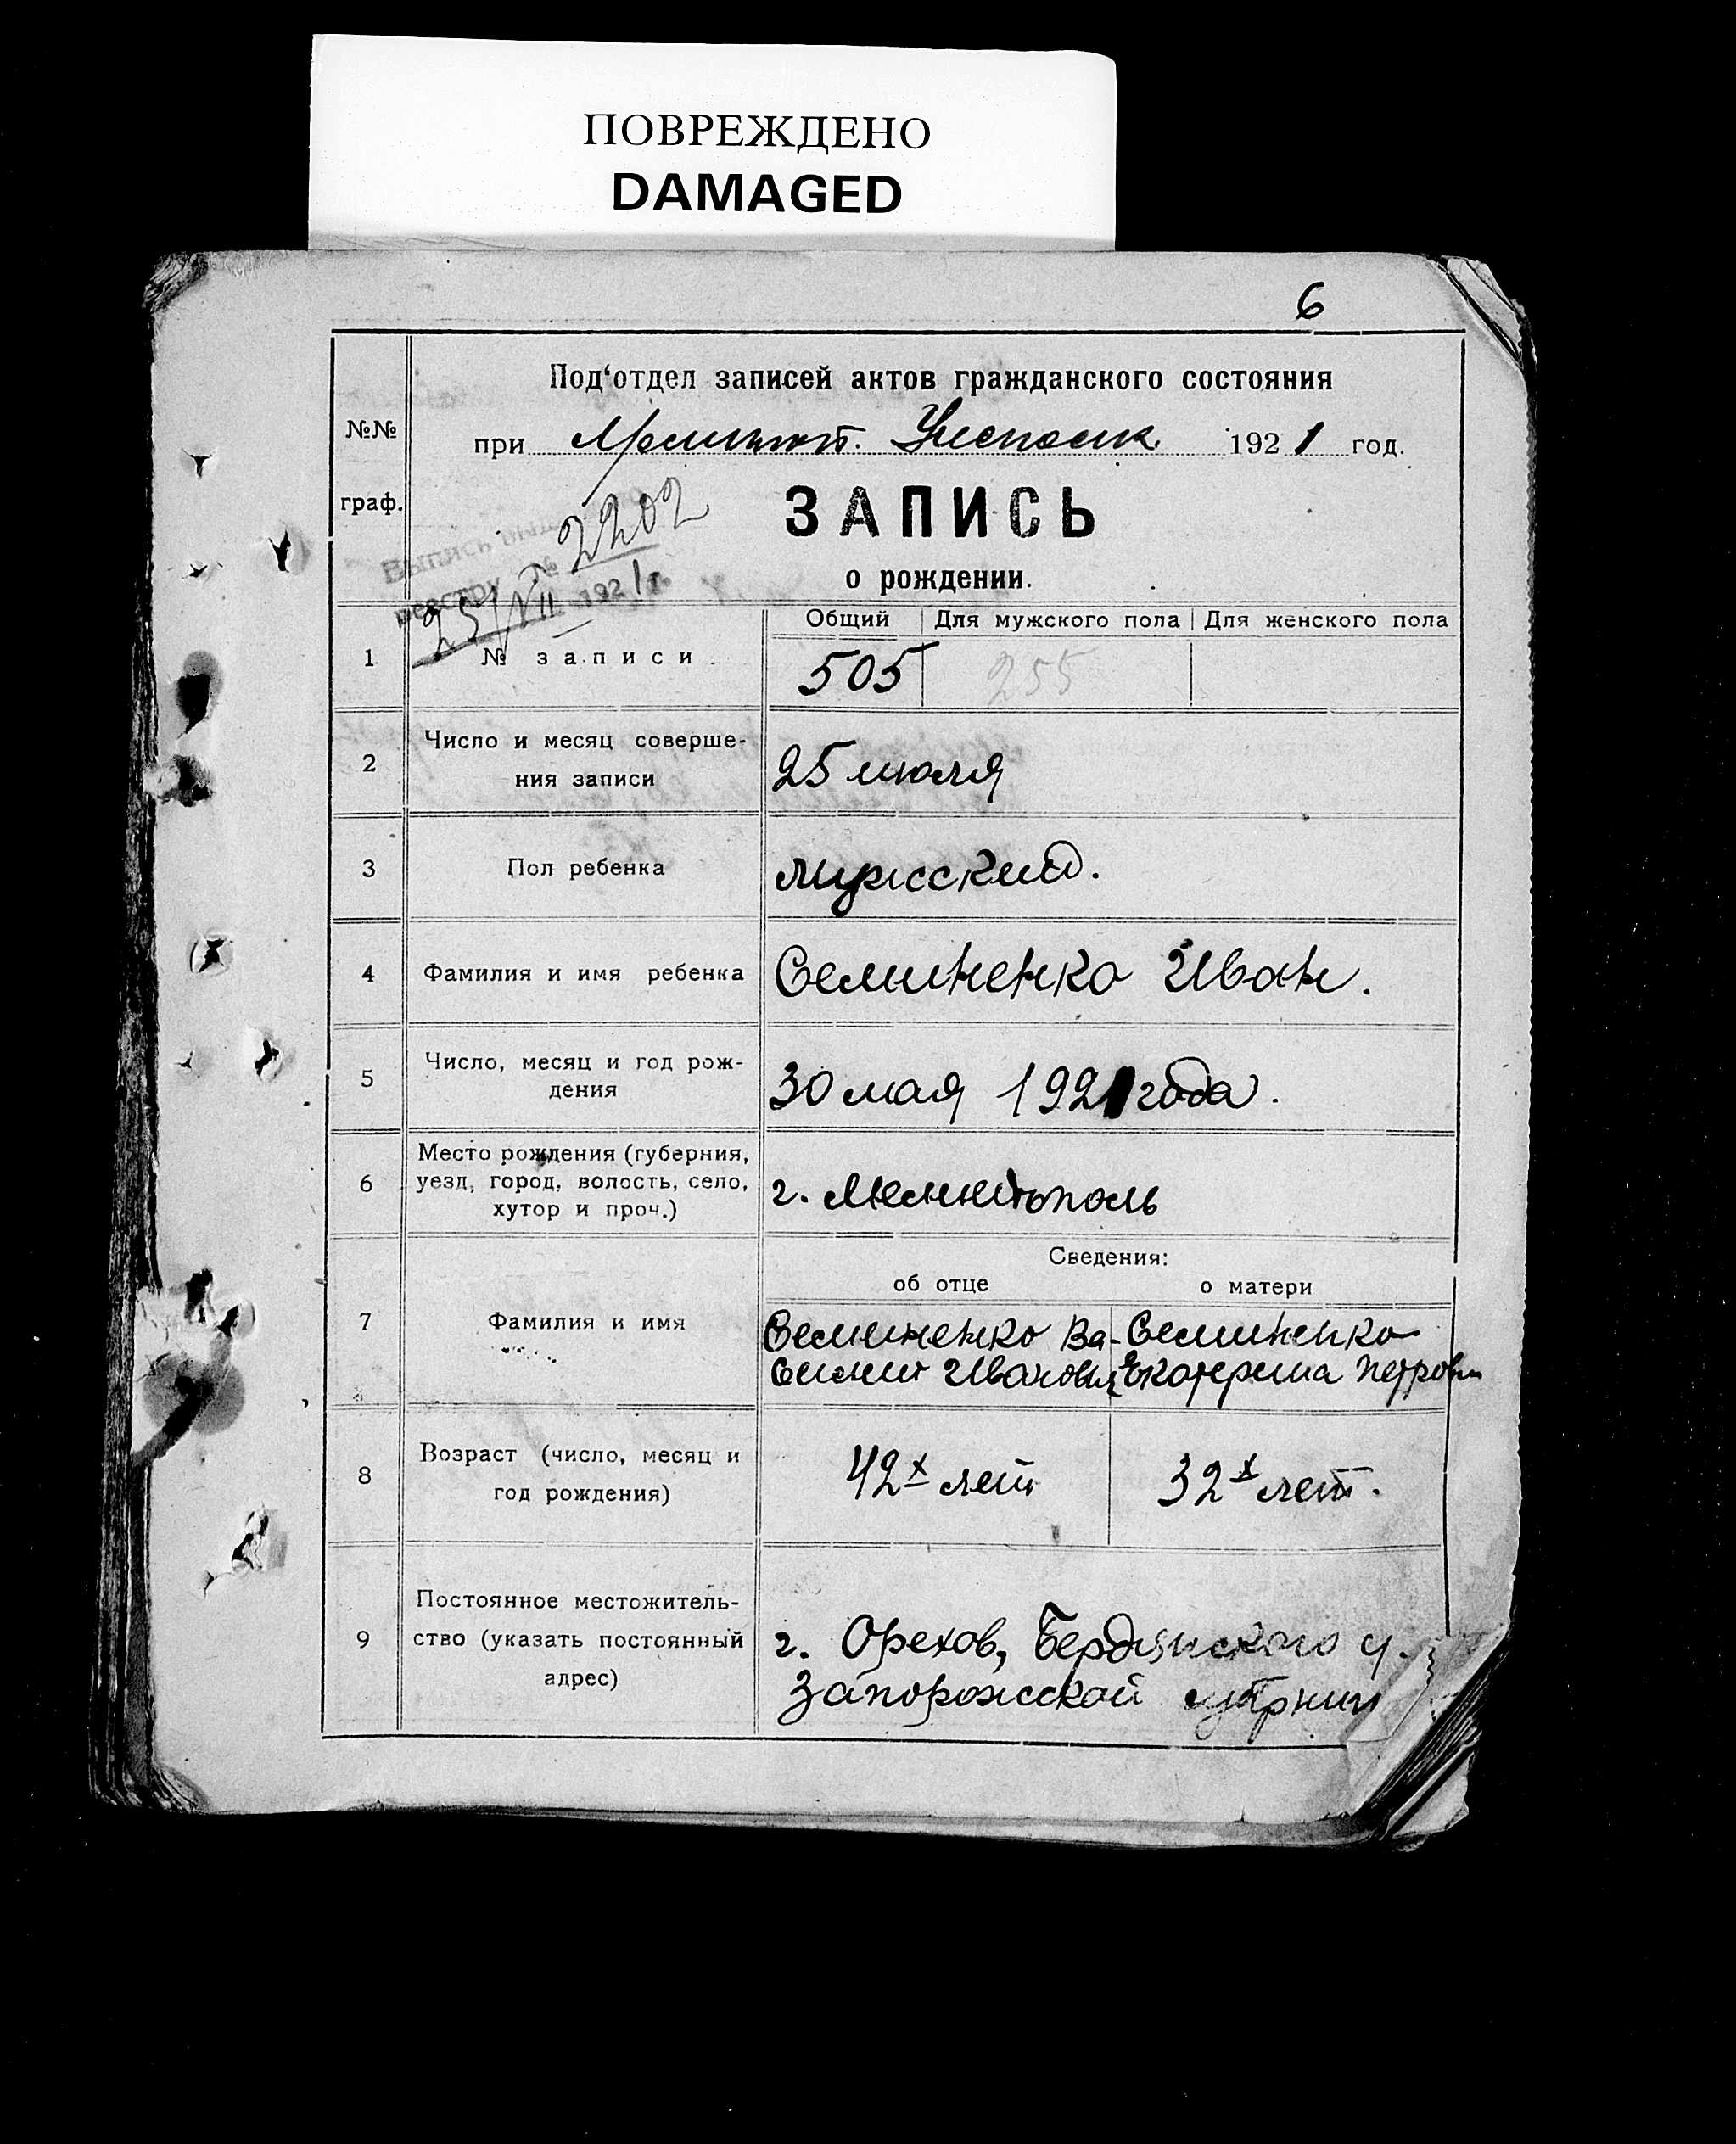 ПОВРЕЖДЕНО
DAMAGED
6
№№ граф.
Под‘отдел записей актов гражданского состояния
при 1921 год.
ЗАПИСЬ
о рождении.
Выпись
реестру № 2202
25/VII 1921 г.
Общий Для мужского пола Для женского пола
1 № записи 505 255
2 Число и месяц соверше-
ния записи 25 июля
3 Пол ребенка мужской.
4 Фамилия и имя ребенка Семиненко Иван.
5 Число, месяц и год рож-
дения 30 мая 1921 года.
6 Место рождения (губерния,
уезд, город, волость, село, г. Мелитополь
хутор и проч.)
Сведения:
об отце о матери
7 Фамилия и имя Семиненко Ва- Семиненко
силий Иванович Екатерина Петровн
8 Возраст (число, месяц и
год рождения) 42х лет 32х лет.
9 Постоянное местожитель-
ство (указать постоянный г. Орехов, Бердянского у.
адрес) Запорожской губернии